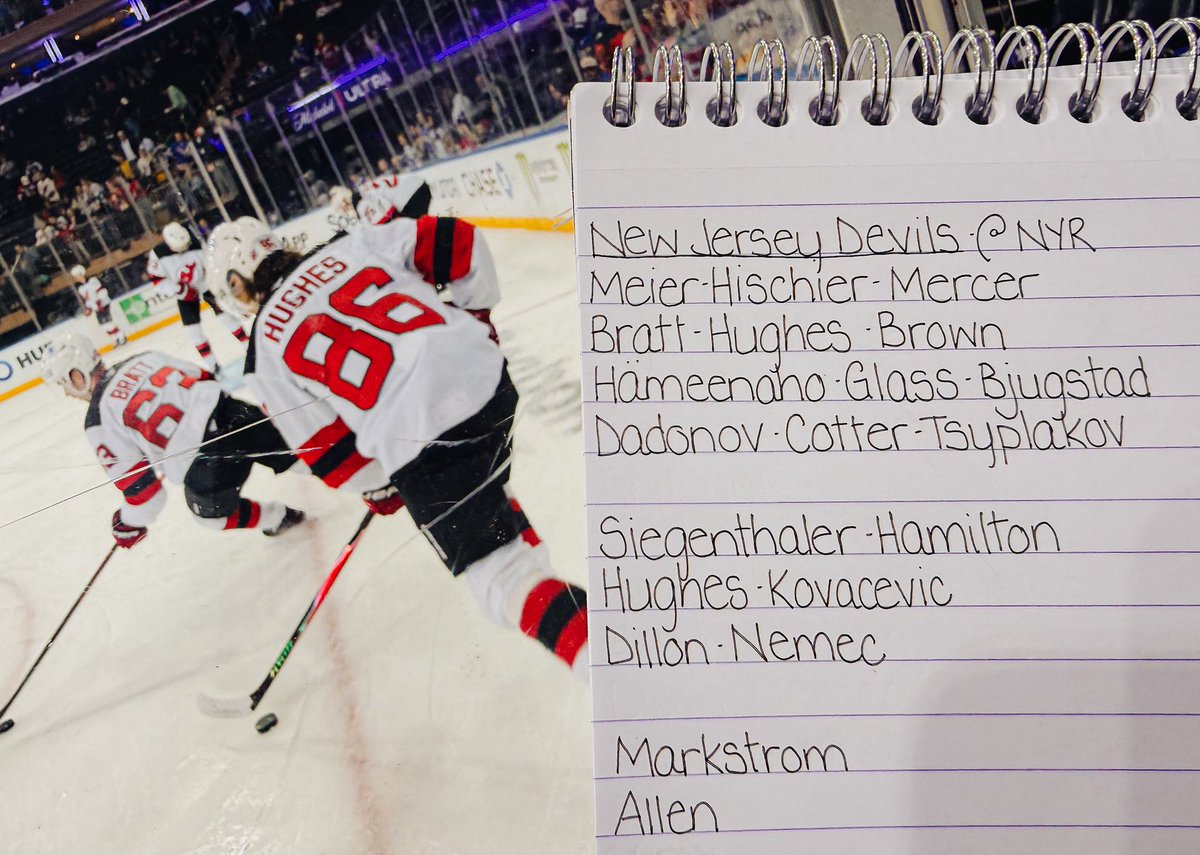 Michelob ULTRA
CHASE
HUGHES
86
BRATT
63
New Jersey Devils · @ NYR
Meier-Hischier-Mercer
Bratt-Hughes·Brown
Hämeenaho·Glass-Bjugstad
Dadonov·Cotter-Tsyplakov
Siegenthaler-Hamilton
Hughes·Kovacevic
Dillon·Nemec
Markstrom
Allen